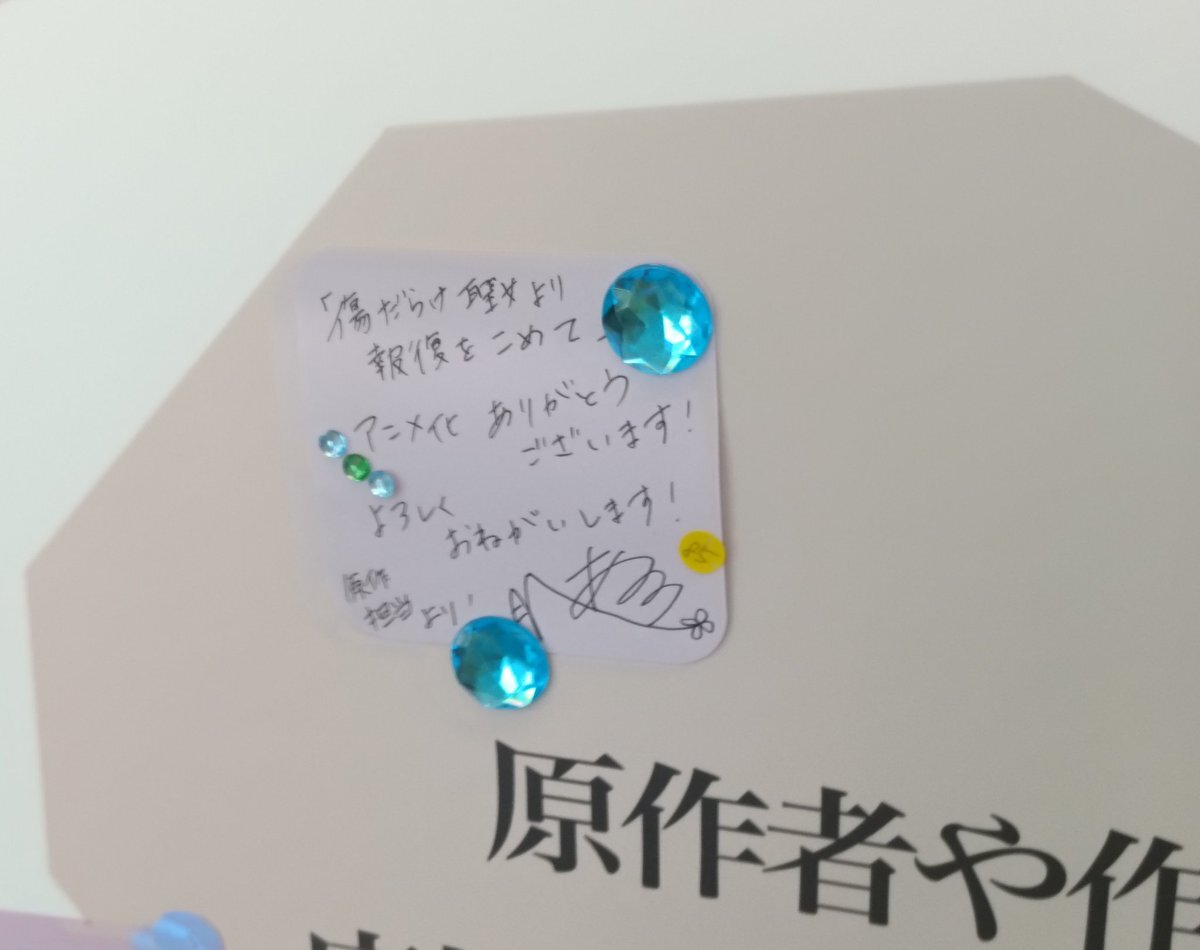 「傷だらけ聖女より
報復をこめて
アニメイト ありがとう
ございます!
よろしく
おねがいします!
原作
担当より!
原作者や作